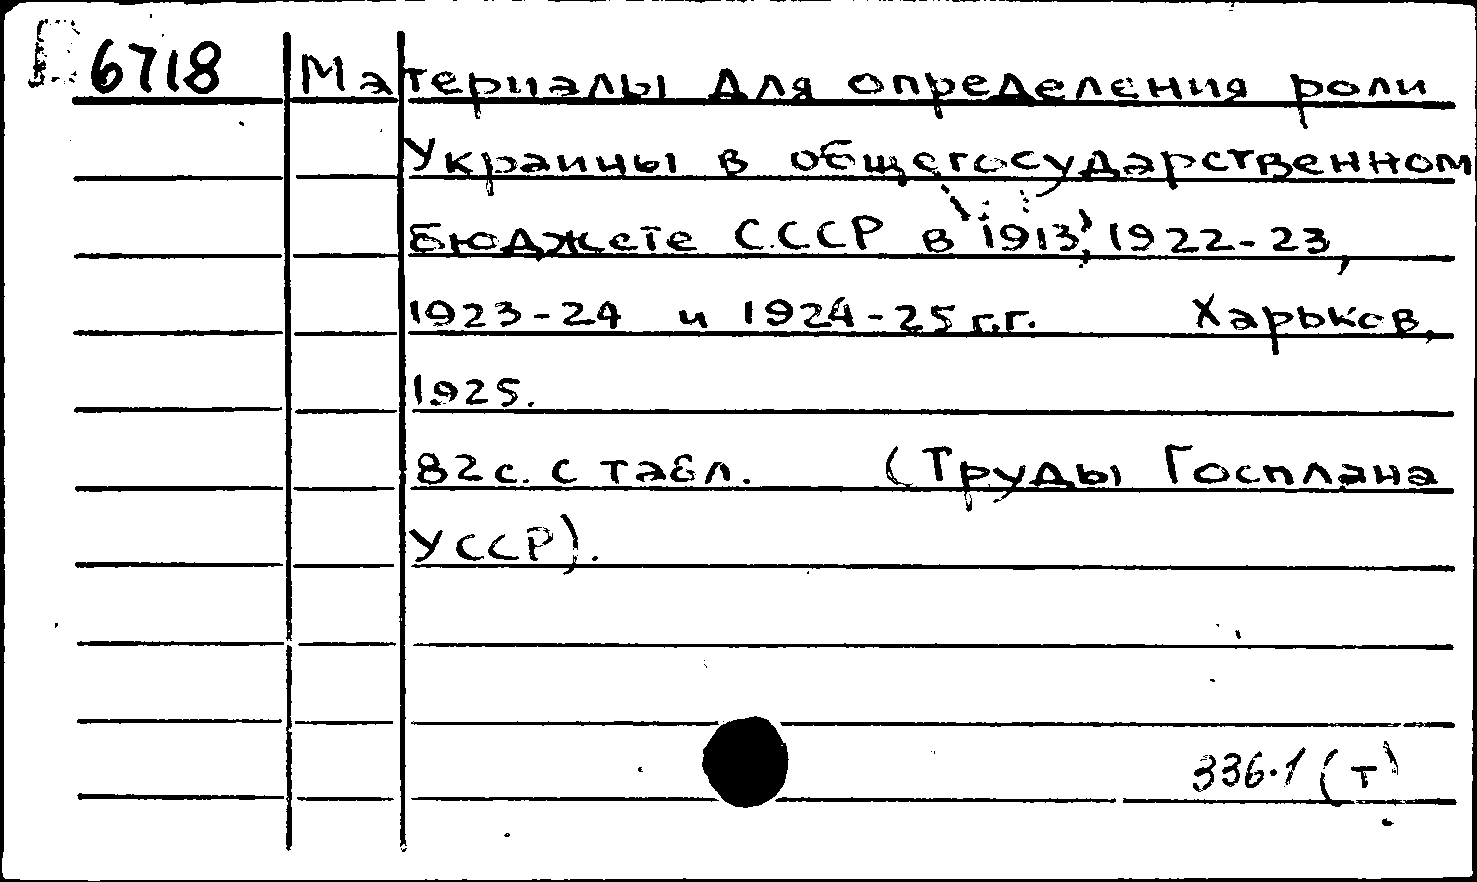 6718 Материалы для определения роли
Украины в общегосударственном
бюджете С.ССР в 1913, 1922-23,
1923-24 и 1924-25 г.г. Харьков,
1925.
82 с. с табл. (Труды Госплана
УССР).
336.1 (т)